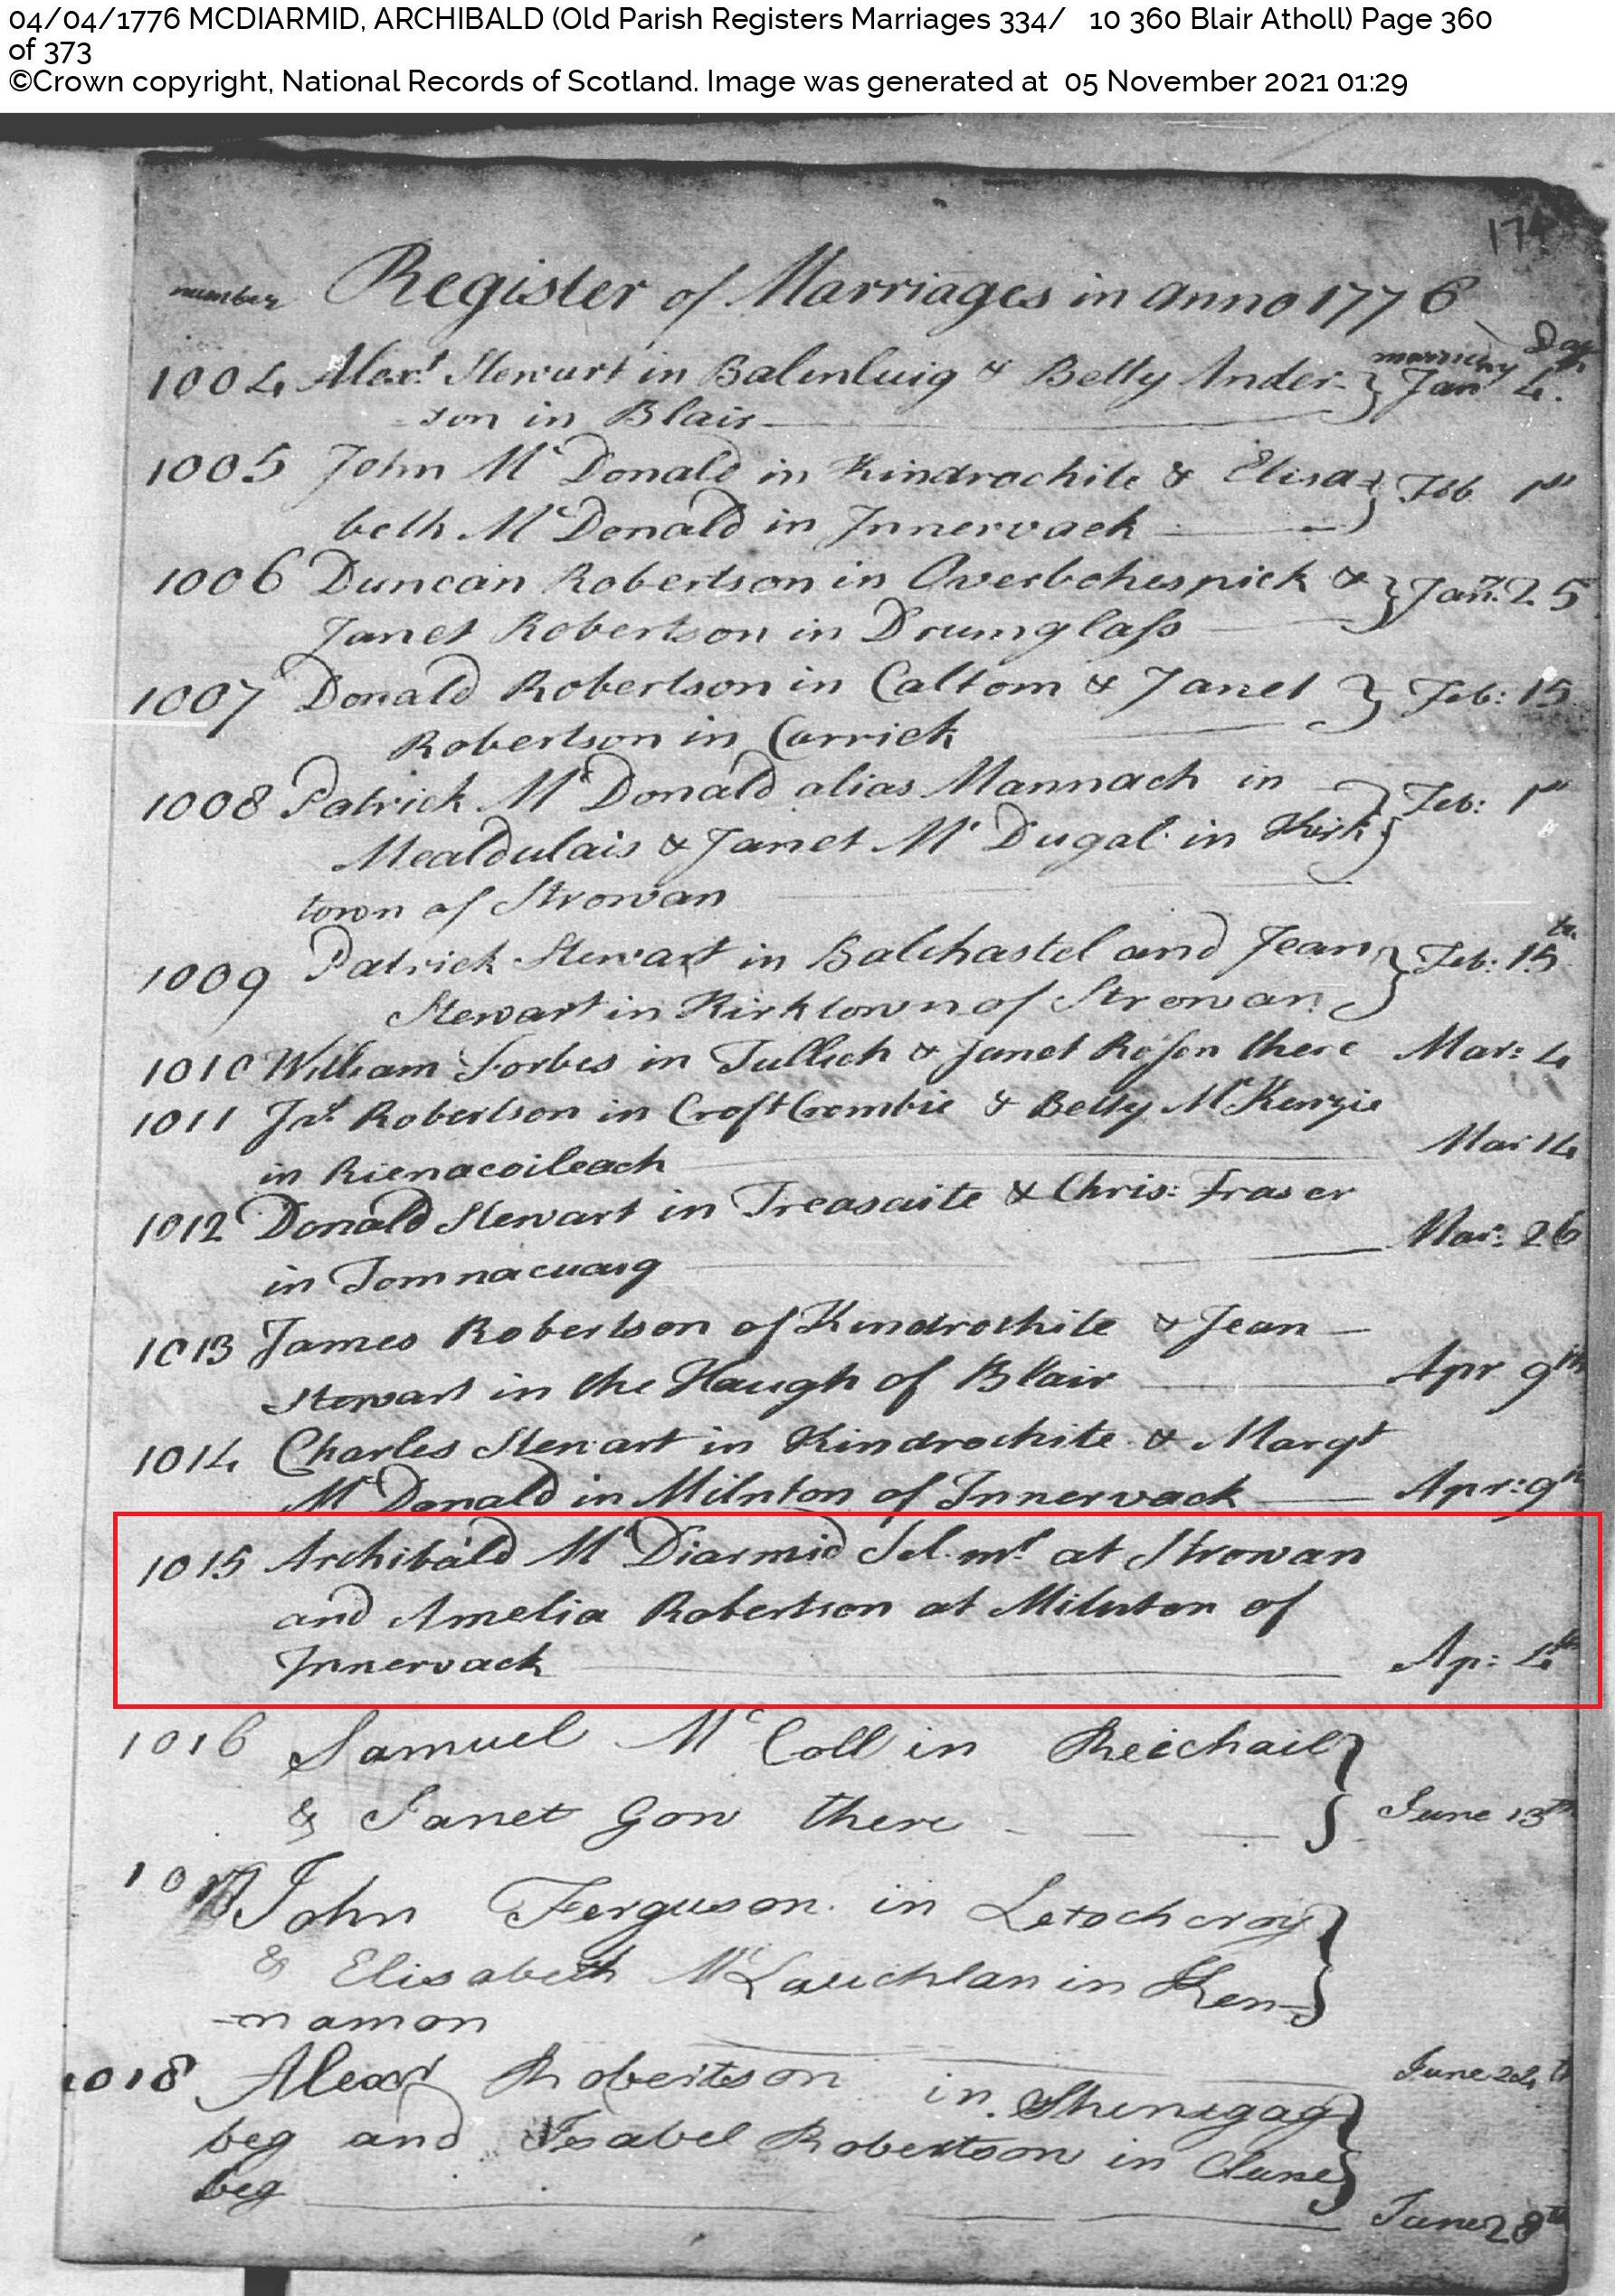 04/04/1776 MCDIARMID, ARCHIBALD (Old Parish Registers Marriages 334/ 10 360 Blair Atholl) Page 360
of 373
©Crown copyright, National Records of Scotland. Image was generated at 05 November 2021 01:29
number Register of Marriages in anno 1776
Day
1004 Alexr. Stewart in Balenluig & Betty Ander- Jan 4.
-son in Blair
1005 John Mc Donald in Kindrochite & Elisa- Feb 1st
beth Mc Donald in Innervack
1006 Duncan Robertson in Overbohespick & Jan: 25
Janet Robertson in Drumglass
1007 Donald Robertson in Caltom & Janet Feb: 15
Robertson in Carrick
1008 Patrick Mc Donald alias Mannach in Feb: 1st
Mealdulais & Janet Mc Dugal in Kirk
town of Strowan
1009 Patrick Stewart in Balchastel and Jean Feb: 15th
Stewart in Kirktown of Strowan
1010 William Forbes in Tullich & Janet there Mar: 4
1011 Robertson in Croft Crombie & Betty Mc Kenzie
in Rienacoileach Mar 14
1012 Donald Stewart in Treasaite & Chris: Fraser
in Tomnacuaig Mar: 26
1013 James Robertson of Kindrochite & Jean
Stewart in the Haugh of Blair Apr 9th
1014 Charles Stewart in Kindrochite & Margt
Mc Donald in Milnton of Innervack Apr: 9th
1015 Archibald Mc Diarmid Scl. mr. at Strowan
and Amelia Robertson at Milnton of
Innervack Ap: 4th
1016 Samuel Mc Coll in Reichail
& Janet Gow there June 13th
1017 John Ferguson in Letochcroy
& Elisabeth McLauchlan in Ken-
-namon
1018 Alexr Robertson in Shenigag June 24th
beg and Isabel Robertson in Clune
beg June 28th